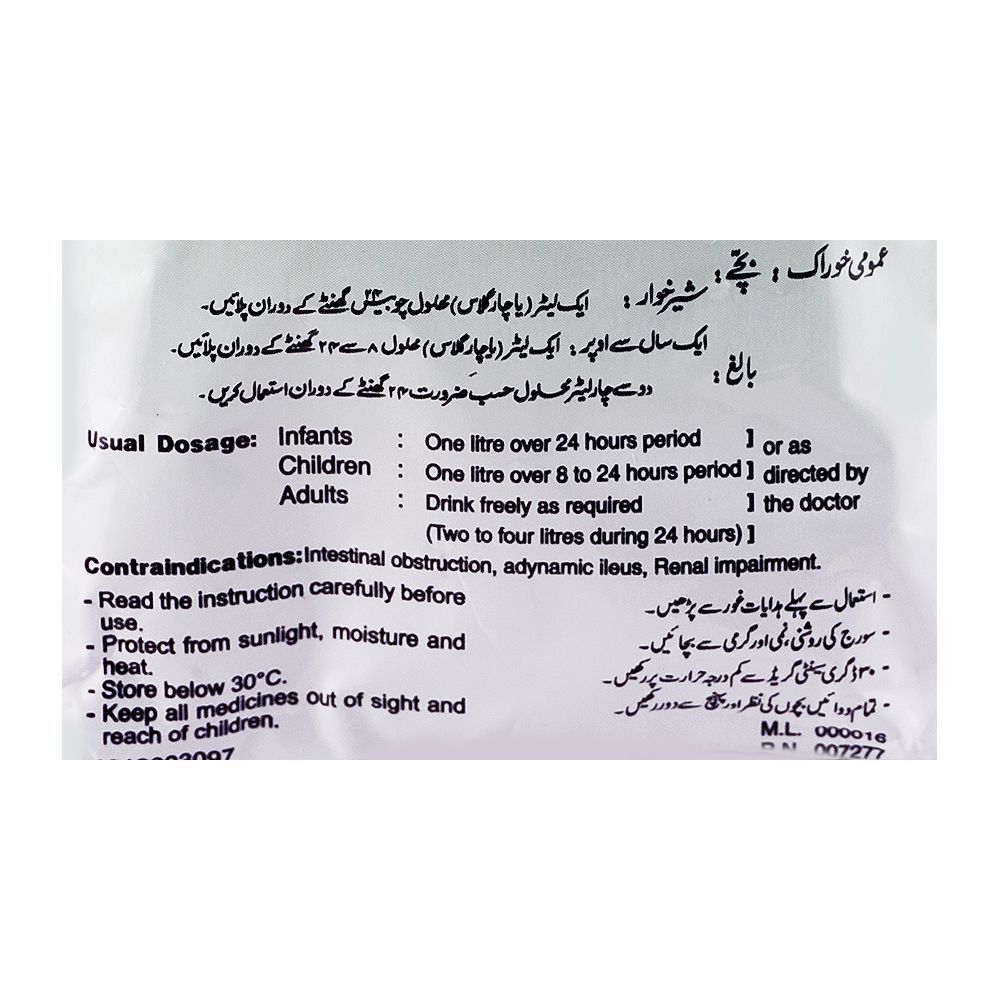 عمومی خوراک : بچّے :
شیرخوار : ایک لیٹر (یا چار گلاس) محلول چوبیس ۲۴ گھنٹے کے دوران پلائیں۔
ایک سال سے اوپر : ایک لیٹر (یا چار گلاس) محلول ۸ سے ۲۴ گھنٹے کے دوران پلائیں۔
بالغ : دو سے چار لیٹر محلول حسبِ ضرورت ۲۴ گھنٹے کے دوران استعمال کریں۔
Usual Dosage: Infants : One litre over 24 hours period ] or as
Children : One litre over 8 to 24 hours period ] directed by
Adults : Drink freely as required ] the doctor
(Two to four litres during 24 hours) ]
Contraindications: Intestinal obstruction, adynamic ileus, Renal impairment.
- Read the instruction carefully before
use.
- Protect from sunlight, moisture and
heat.
- Store below 30°C.
- Keep all medicines out of sight and
reach of children.
- استعمال سے پہلے ہدایات غور سے پڑھیں۔
- سورج کی روشنی، نمی اور گرمی سے بچائیں۔
- ۳۰ ڈگری سینٹی گریڈ سے کم درجہ حرارت پر رکھیں۔
- تمام دوائیں بچوں کی نظر اور پہنچ سے دور رکھیں۔
M.L. 000016
R.N. 007277